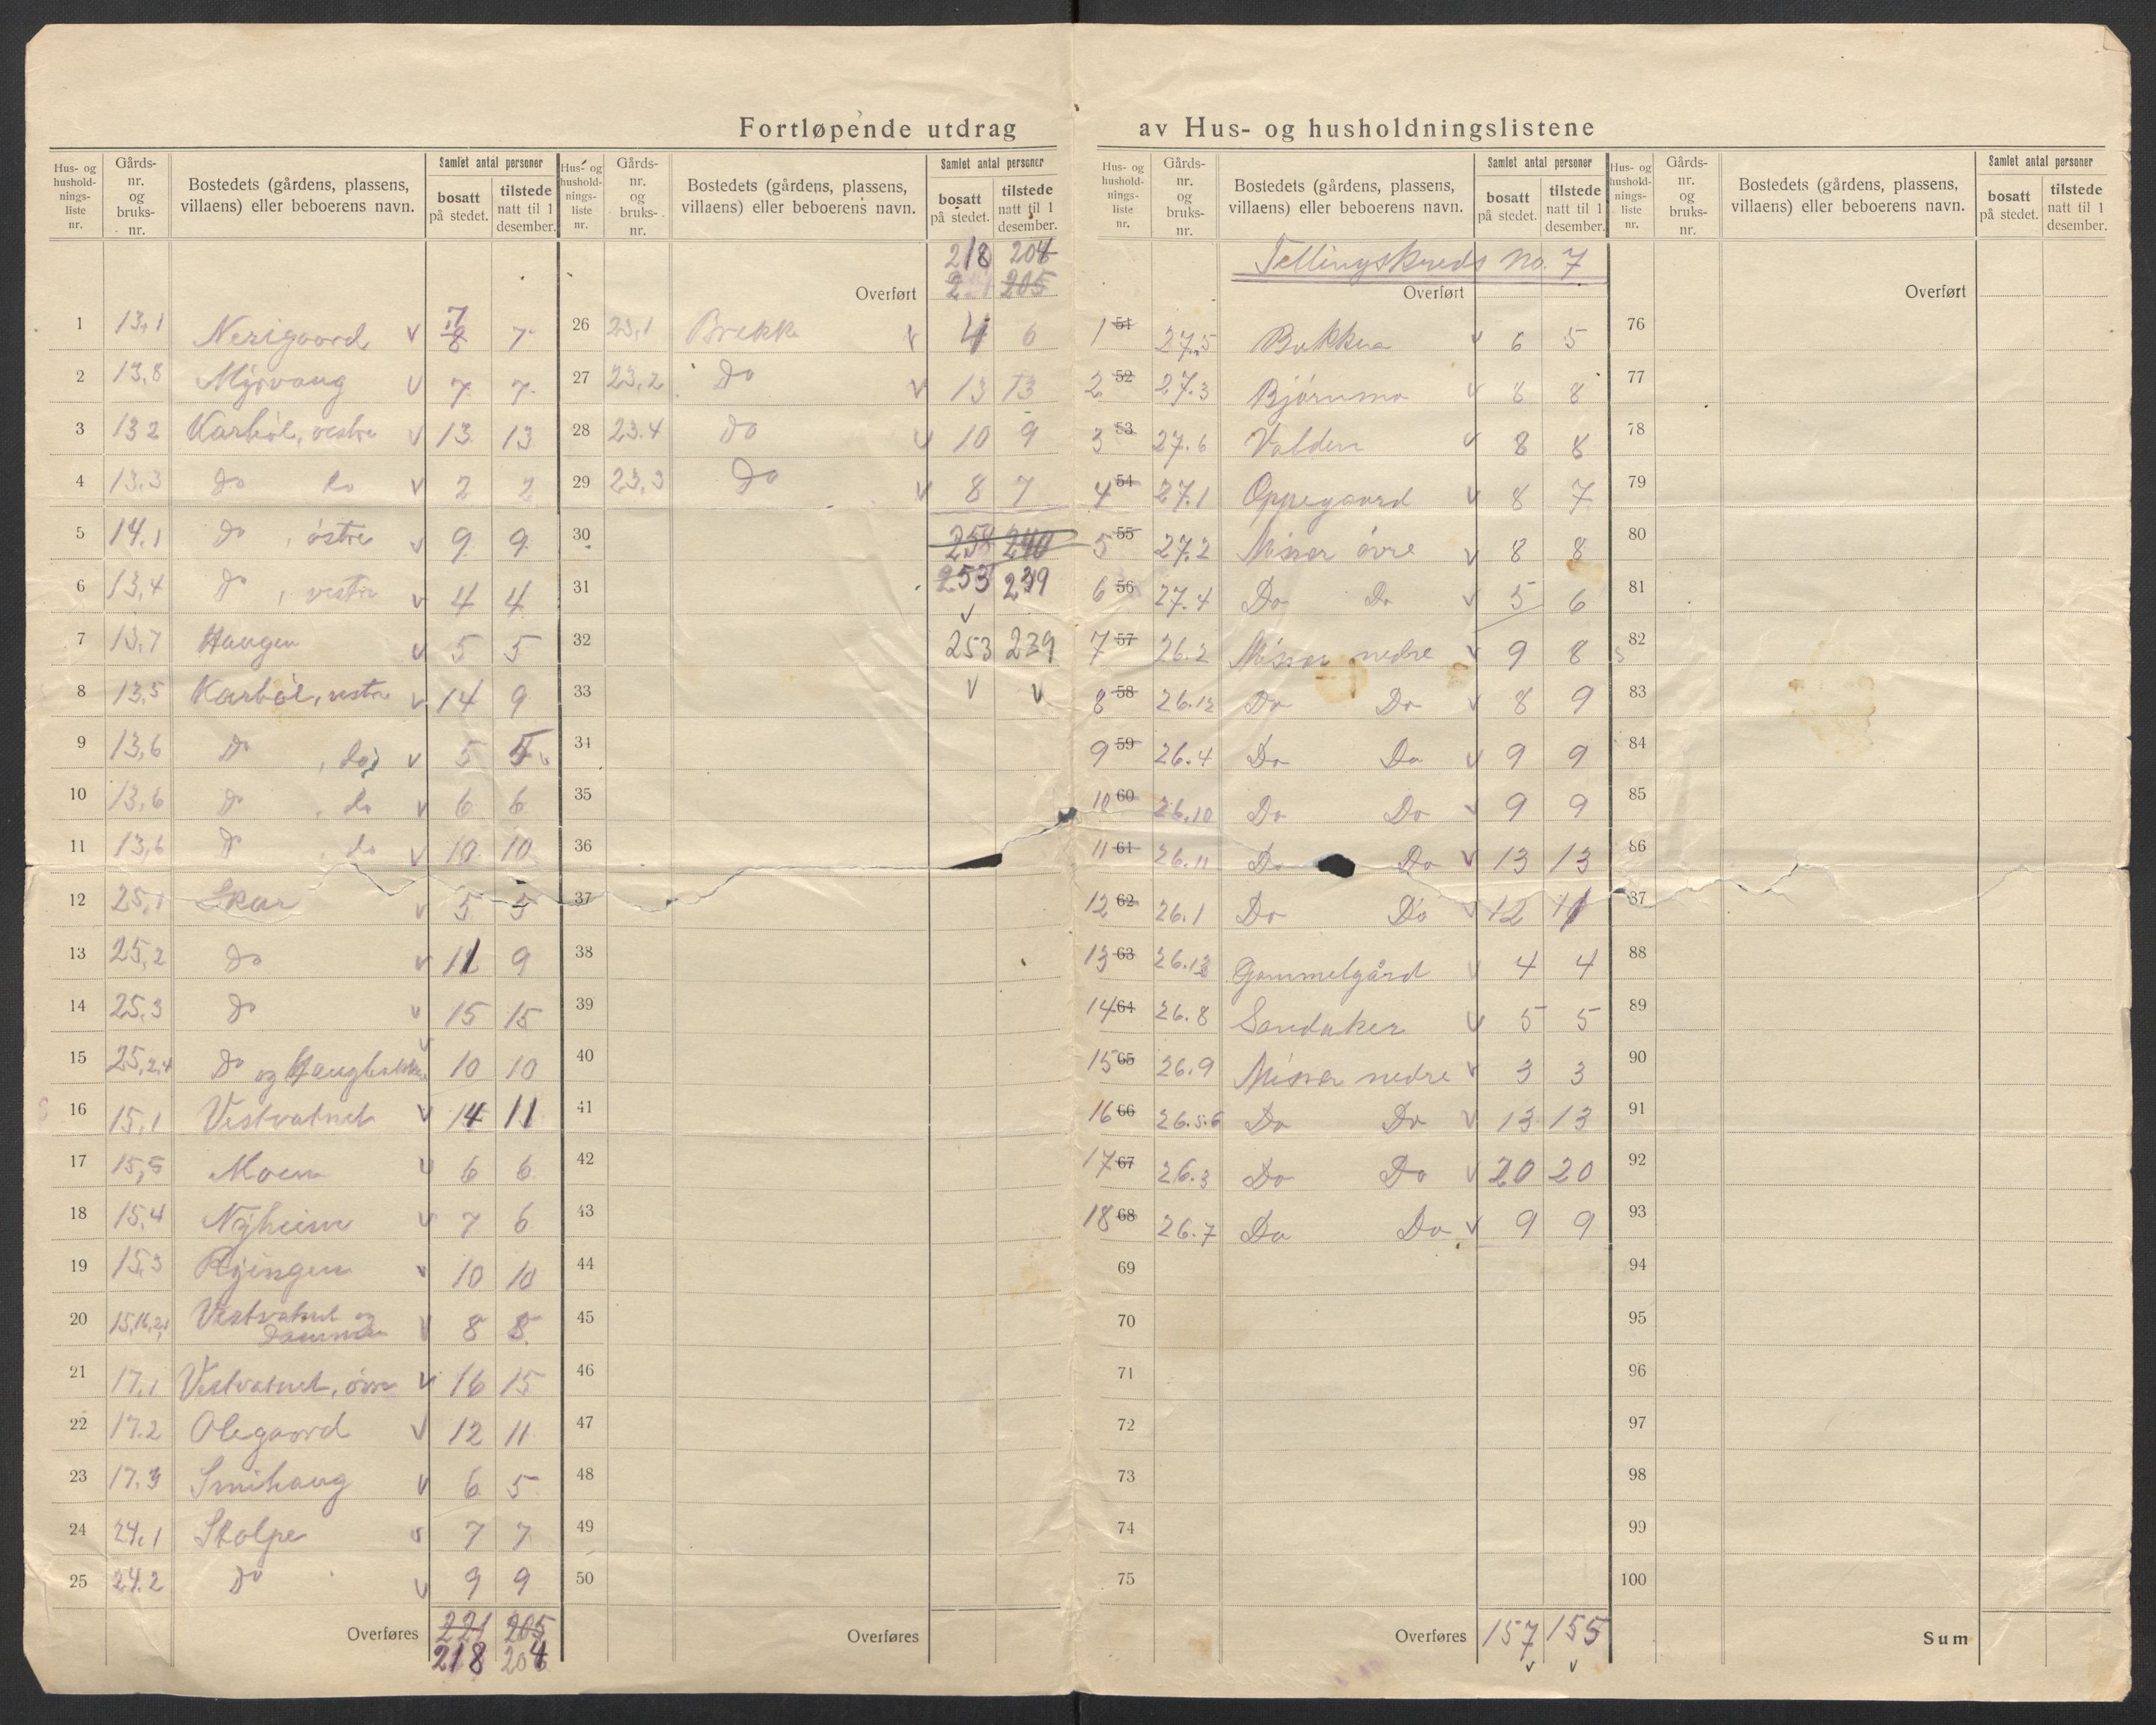 Fortløpende utdrag av Hus- og husholdningslistene
Hus- og hushold-nings-liste nr. | Gårds-nr. og bruks-nr. | Bostedets (gårdens, plassens, villaens) eller beboerens navn. | Samlet antal personer | bosatt på stedet. | tilstede natt til 1 desember.
1 13,1 Nerigaard v 7 8 7
2 13,8 Myrvang v 7 7
3 13 2 Karbøl, vestre v 13 13
4 13.3 Do Do v 2 2
5 14.1 Do , østre v 9 9
6 13,4 Do , vestre v 4 4
7 13,7 Haugen v 5 5
8 13,5 Karbøl, vestre v 14 9
9 13,6 Do , do v 5 5
10 13,6 Do , do v 6 6
11 13,6 Do , do v 10 10
12 25,1 Skar v 5 5
13 25,2 Do v 11 9
14 25,3 Do v 15 15
15 25,2,4 Do og v 10 10
16 15,1 Vestvatnet v 14 11
17 15,5 Moen v 6 6
18 15,4 Nyheim v 7 6
19 15,3 Ryingen v 10 10
20 Vestvatnet og v 8 8
21 17,1 Vestvatnet, övre v 16 15
22 17.2 Olegaard v 12 11
23 17.3 Smihaug v 6 5
24 24,1 Stolpe v 7 7
25 24.2 Do v 9 9
Overføres 221 205
218 204
Hus- og hushold-nings-liste nr. | Gårds-nr. og bruks-nr. | Bostedets (gårdens, plassens, villaens) eller beboerens navn. | Samlet antal personer | bosatt på stedet. | tilstede natt til 1 desember.
218 204
Overført 205
26 23,1 Brekke v 4 6
27 23,2 Do v 13 13
28 23.4 Do v 10 9
29 23,3 Do v 8 7
30 258 240
31 253 239
v
32 253 239
33 v v
34
35
36
37
38
39
40
41
42
43
44
45
46
47
48
49
50
Overføres
Hus- og hushold-nings-liste nr. | Gårds-nr. og bruks-nr. | Bostedets (gårdens, plassens, villaens) eller beboerens navn. | Samlet antal personer | bosatt på stedet. | tilstede natt til 1 desember.
Tellingskreds no. 7
Overført
1 51 27.5 Bakken v 6 5
2 52 27.3 Bjørnmo v 8 8
3 53 27.6 Volden v 8 8
4 54 27.1 Oppegaard v 8 7
5 55 27.2 Misvær övre v 8 8
6 56 27.4 Do Do v 5 6
7 57 26.2 Misvær nedre v 9 8
8 58 26.12 Do Do v 8 9
9 59 26.4 Do Do v 9 9
10 60 26.10 Do Do v 9 9
11 61 26.11 Do Do v 13 13
12 62 26.1 Do Do v 12 11
13 63 26.13 Gammelgård v 4 4
14 64 26.8 Sandaker v 5 5
15 65 26.9 Misvær nedre v 3 3
16 66 26.5.6 Do Do v 13 13
17 67 26.3 Do Do v 20 20
18 68 26.7 Do Do v 9 9
69
70
71
72
73
74
75
Overføres 157 155
v v
Hus- og hushold-nings-liste nr. | Gårds-nr. og bruks-nr. | Bostedets (gårdens, plassens, villaens) eller beboerens navn. | Samlet antal personer | bosatt på stedet. | tilstede natt til 1 desember.
Overført
76
77
78
79
80
81
82
83
84
85
86
87
88
89
90
91
92
93
94
95
96
97
98
99
100
Sum